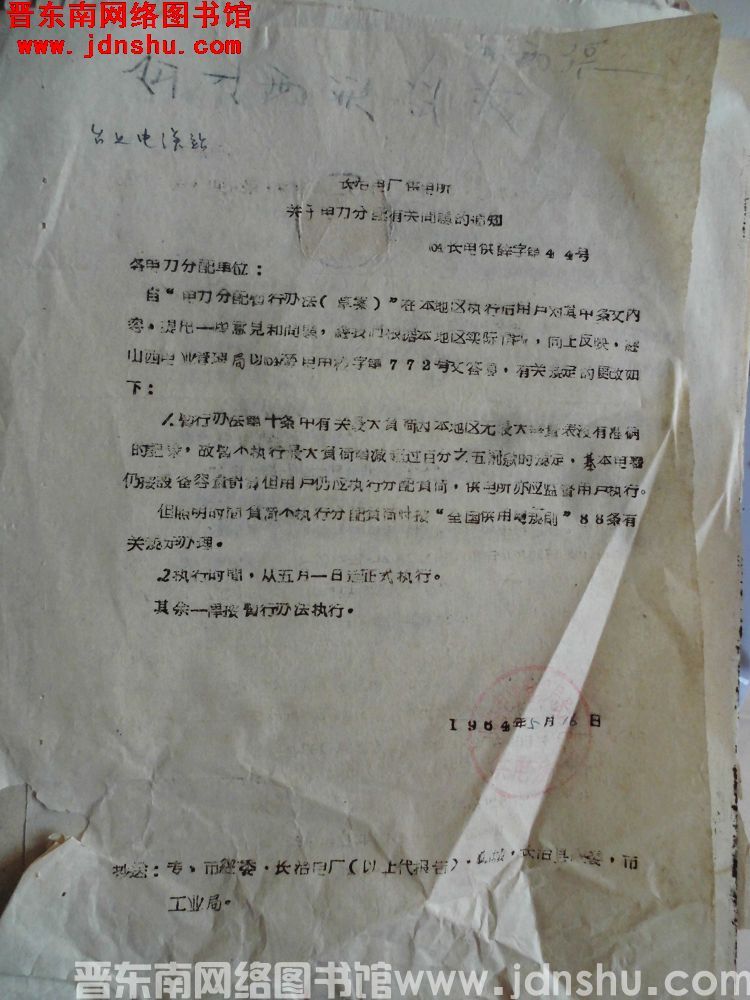 晋东南网络图书馆
www.jdnshu.com
长治电厂供电所
关于电力分配有关问题的通知
长电供 字第44号
各电力分配单位：
自“电力分配暂行办法（草案）”在本地区执行后用户对其中条文内
容，提出一些意见和问题，经我们根据本地区实际情况，向上反映，经
山西电业管理局以 电用 字第772号文答复，有关规定的更改如
下：
1.暂行办法第十条中有关最大负荷因本地区无最大 量表没有准确
的记录，故暂不执行最大负荷增减超过百分之五 的规定，基本电费
仍按设备容量 算但用户仍应执行分配负荷，供电所亦应监督用户执行。
但照明时间负荷不执行分配负荷时按“全国供用电规则”88条有
关规定办理。
2执行时间，从五月一日起正式执行。
其余一律按暂行办法执行。
1964年5月16日
抄送：专、市经委·长治电厂（以上代报告）· 长治县 委·市
工业局。
晋东南网络图书馆www.jdnshu.com